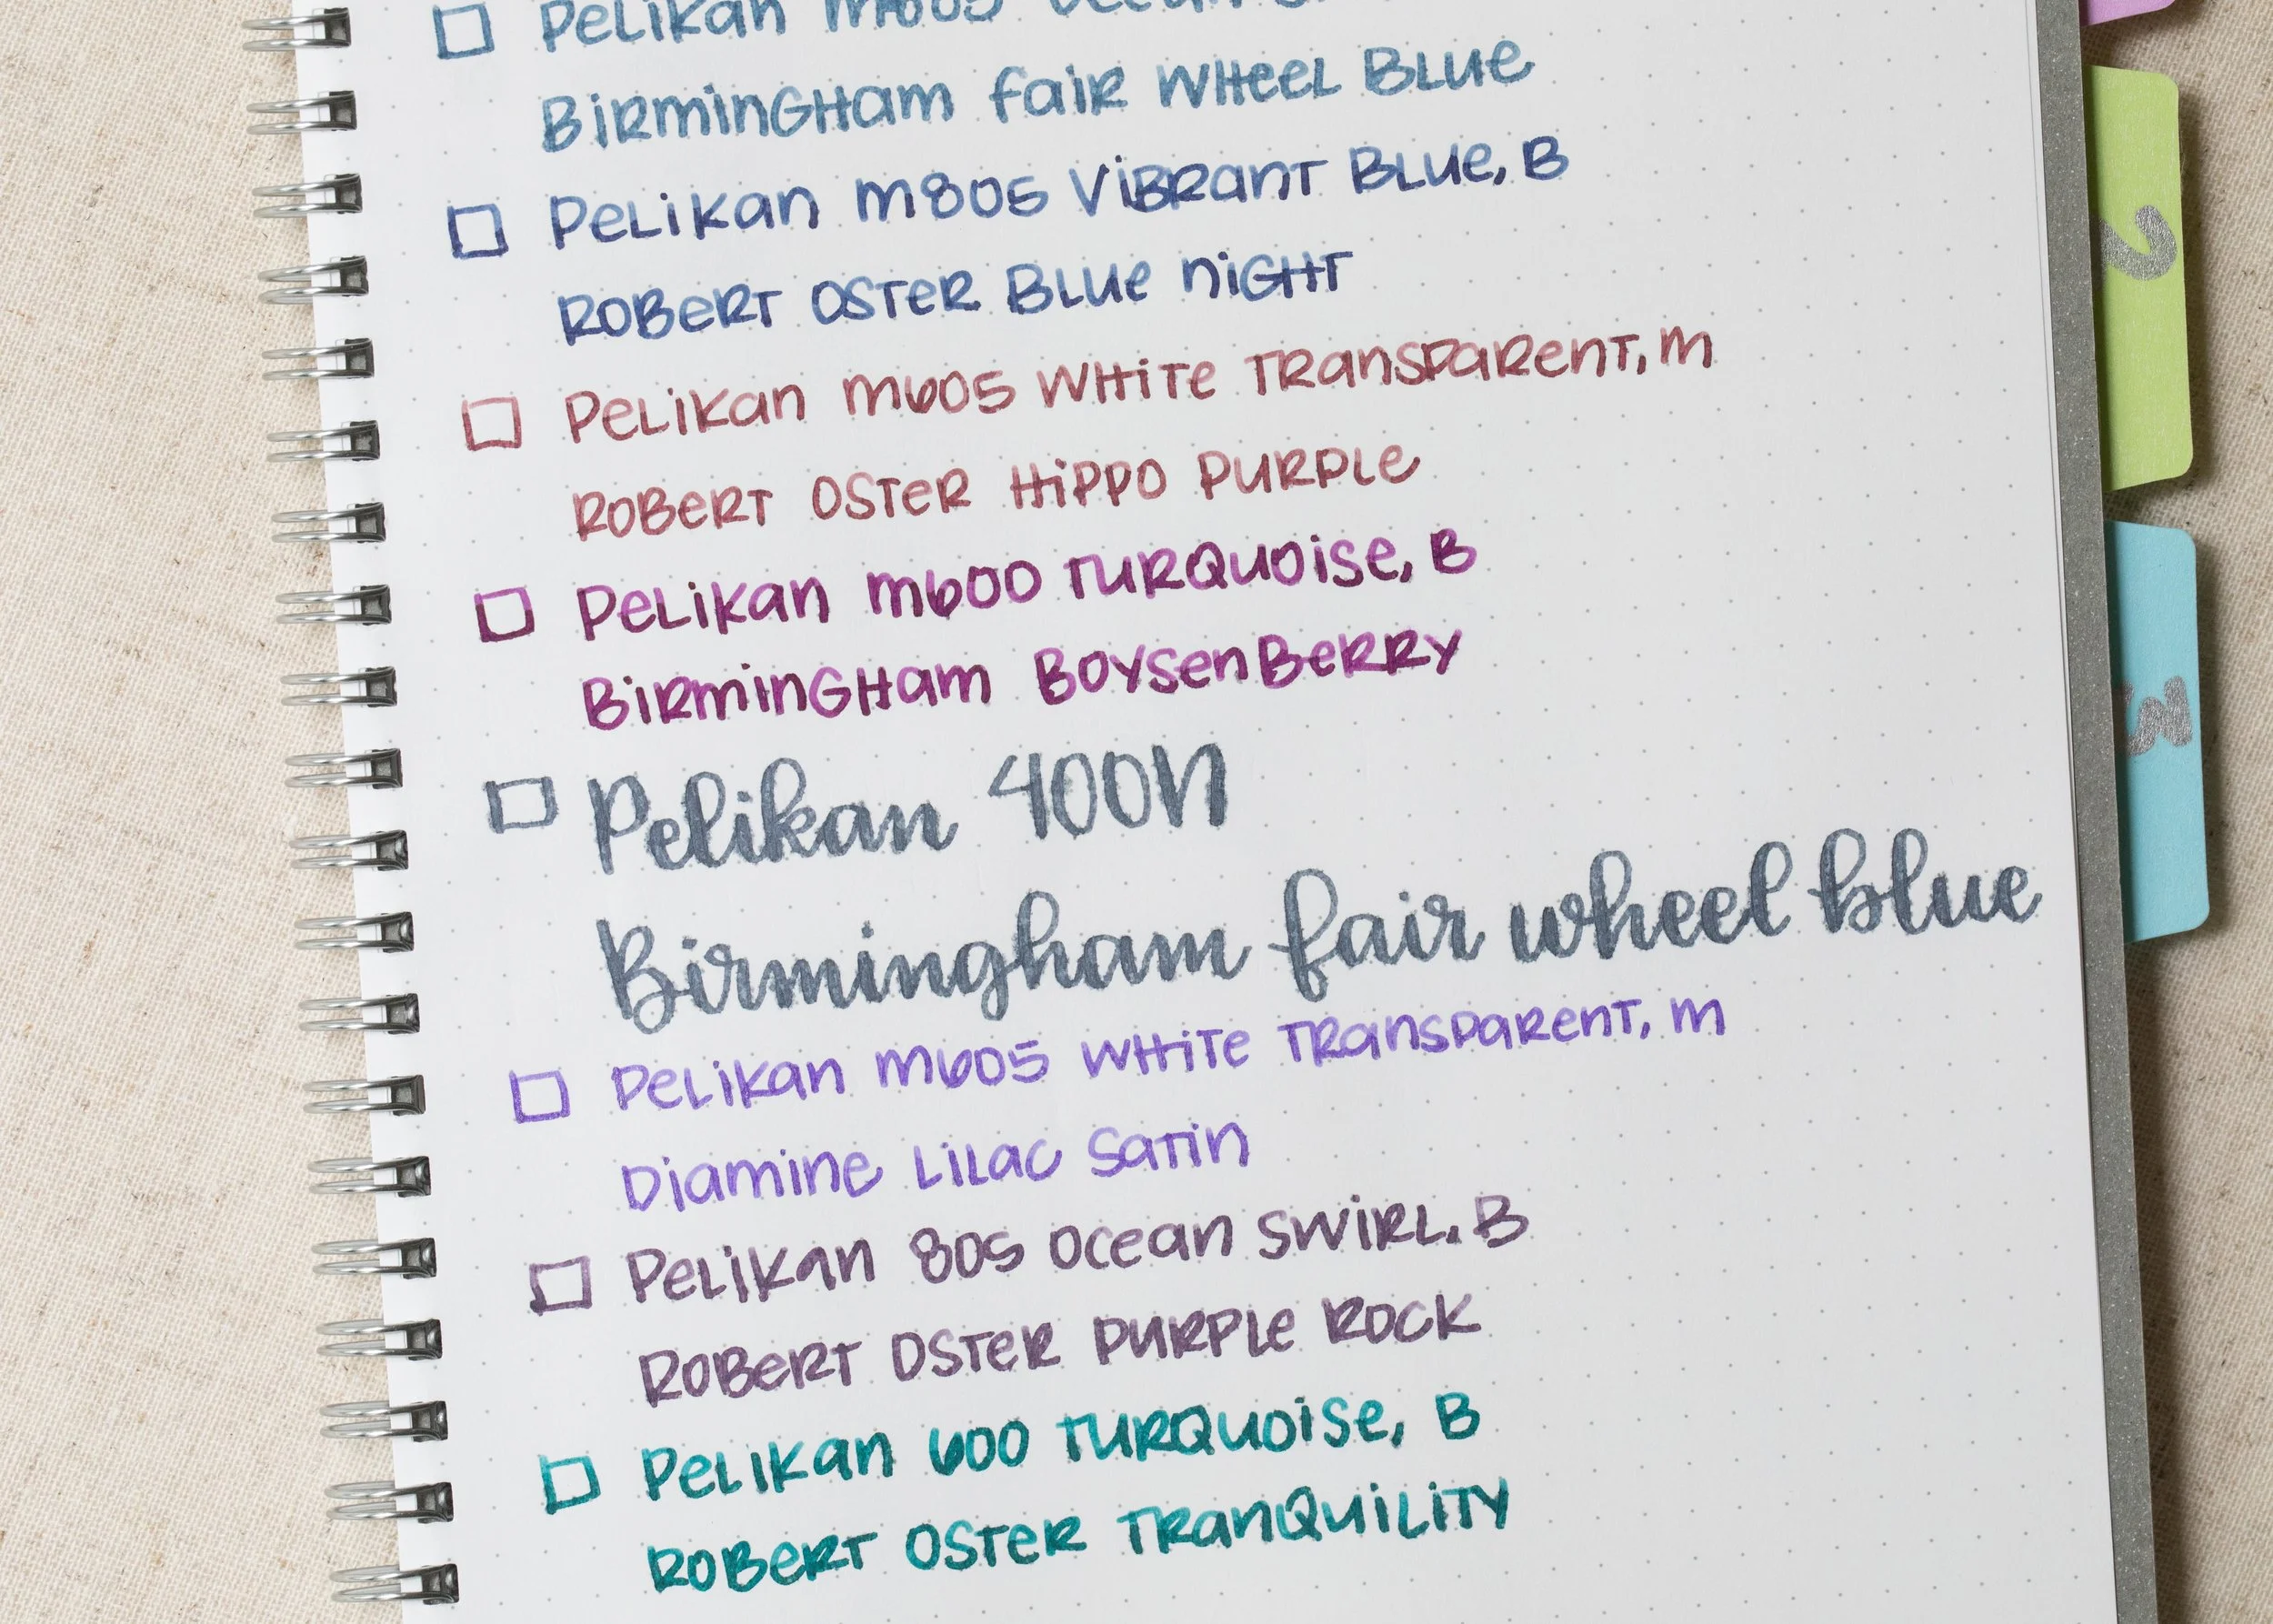 Pelikan m805 Ocean
BirminGHam fair WHeeL BLue
PeLiKan m805 ViBRanT BLue, B
ROBeRT OSTeR BLue niGHT
PeLiKan m605 WHiTe TRansPaRenT, m
ROBeRT OSTeR HiPPO PuRPLe
PeLiKan m600 TuRQuoise, B
BiRminGHam BoysenBeRRy
Pelikan 400N
Birmingham fair wheel blue
PeLiKan m605 WHiTe TRansPaRenT, m
Diamine LiLac SaTin
PeLiKan 805 Ocean SwiRL, B
ROBeRT OSTeR PuRPLe ROCK
PeLiKan 600 TuRQuoise, B
ROBeRT OSTeR TRanQuiLiTy
2
3